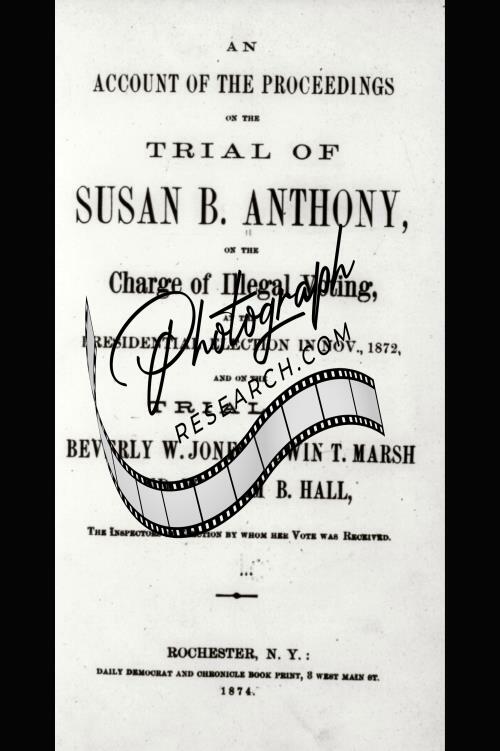 AN
ACCOUNT OF THE PROCEEDINGS
ON THE
TRIAL OF
SUSAN B. ANTHONY,
ON THE
Charge of Illegal Voting,
AT THE
PRESIDENTIAL ELECTION IN NOV., 1872,
AND ON THE
TRIAL
BEVERLY W. JONES, T. MARSH
B. HALL,
THE INSPECTORS ELECTION BY WHOM HER VOTE WAS RECEIVED.
ROCHESTER, N. Y.:
DAILY DEMOCRAT AND CHRONICLE BOOK PRINT, 3 WEST MAIN ST.
1874.
Photograph
RESEARCH.COM